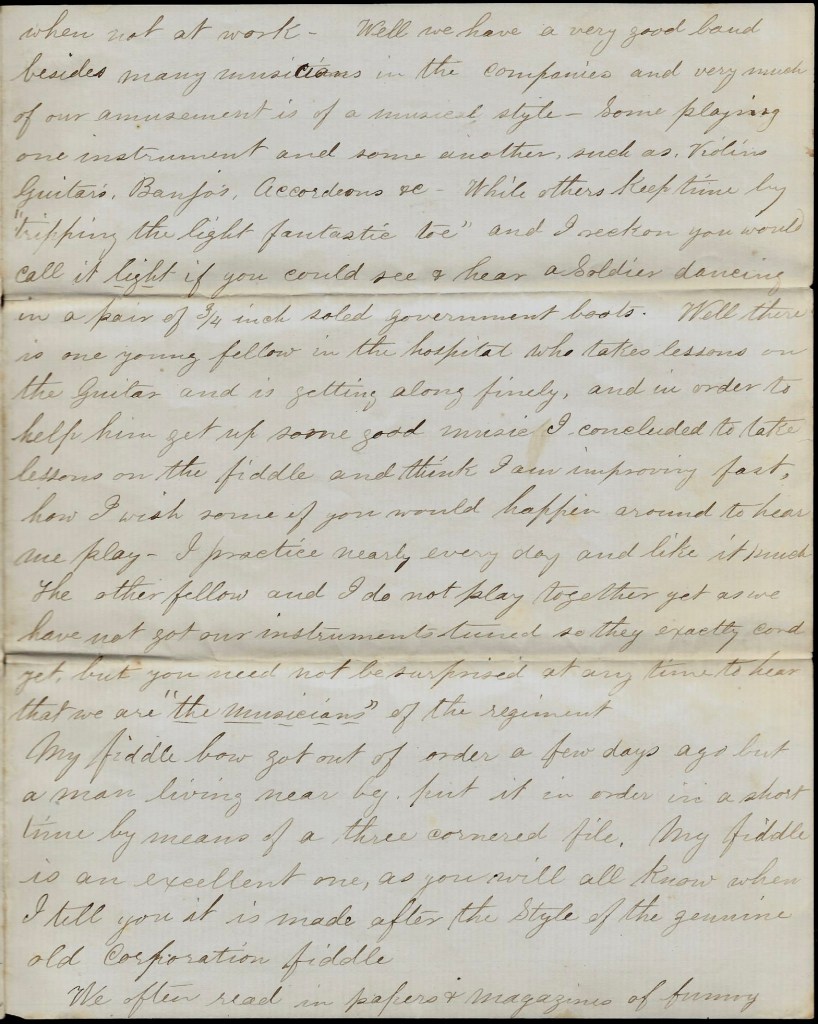 when not at work - Well we have a very good band
besides many musicians in the companies and very much
of our amusement is of a musical style - Some playing
one instrument and some another, such as, Violins
Guitar's, Banjo's, Accordeons &c - While others Keep time by
"tripping the light fantastic toe" and I reckon you would
call it light if you could see & hear a Soldier dancing
in a pair of 3/4 inch soled government boots. Well there
is one young fellow in the hospital who takes lessons on
the Guitar and is getting along finely, and in order to
help him get up some good music I concluded to take
lessons on the fiddle and think I am improving fast,
how I wish some of you would happen around to hear
me play - I practice nearly every day and like it much
The other fellow and I do not play together yet as we
have not got our instruments tuned so they exactly cord
yet, but you need not be surprised at any time to hear
that we are "the musicians" of the regiment
My fiddle bow got out of order a few days ago but
a man living near by. put it in order in a short
time by means of a three cornered file, My fiddle
is an excellent one, as you will all Know when
I tell you it is made after the Style of the genuine
old Corporation fiddle
We often read in papers & magazines of funny